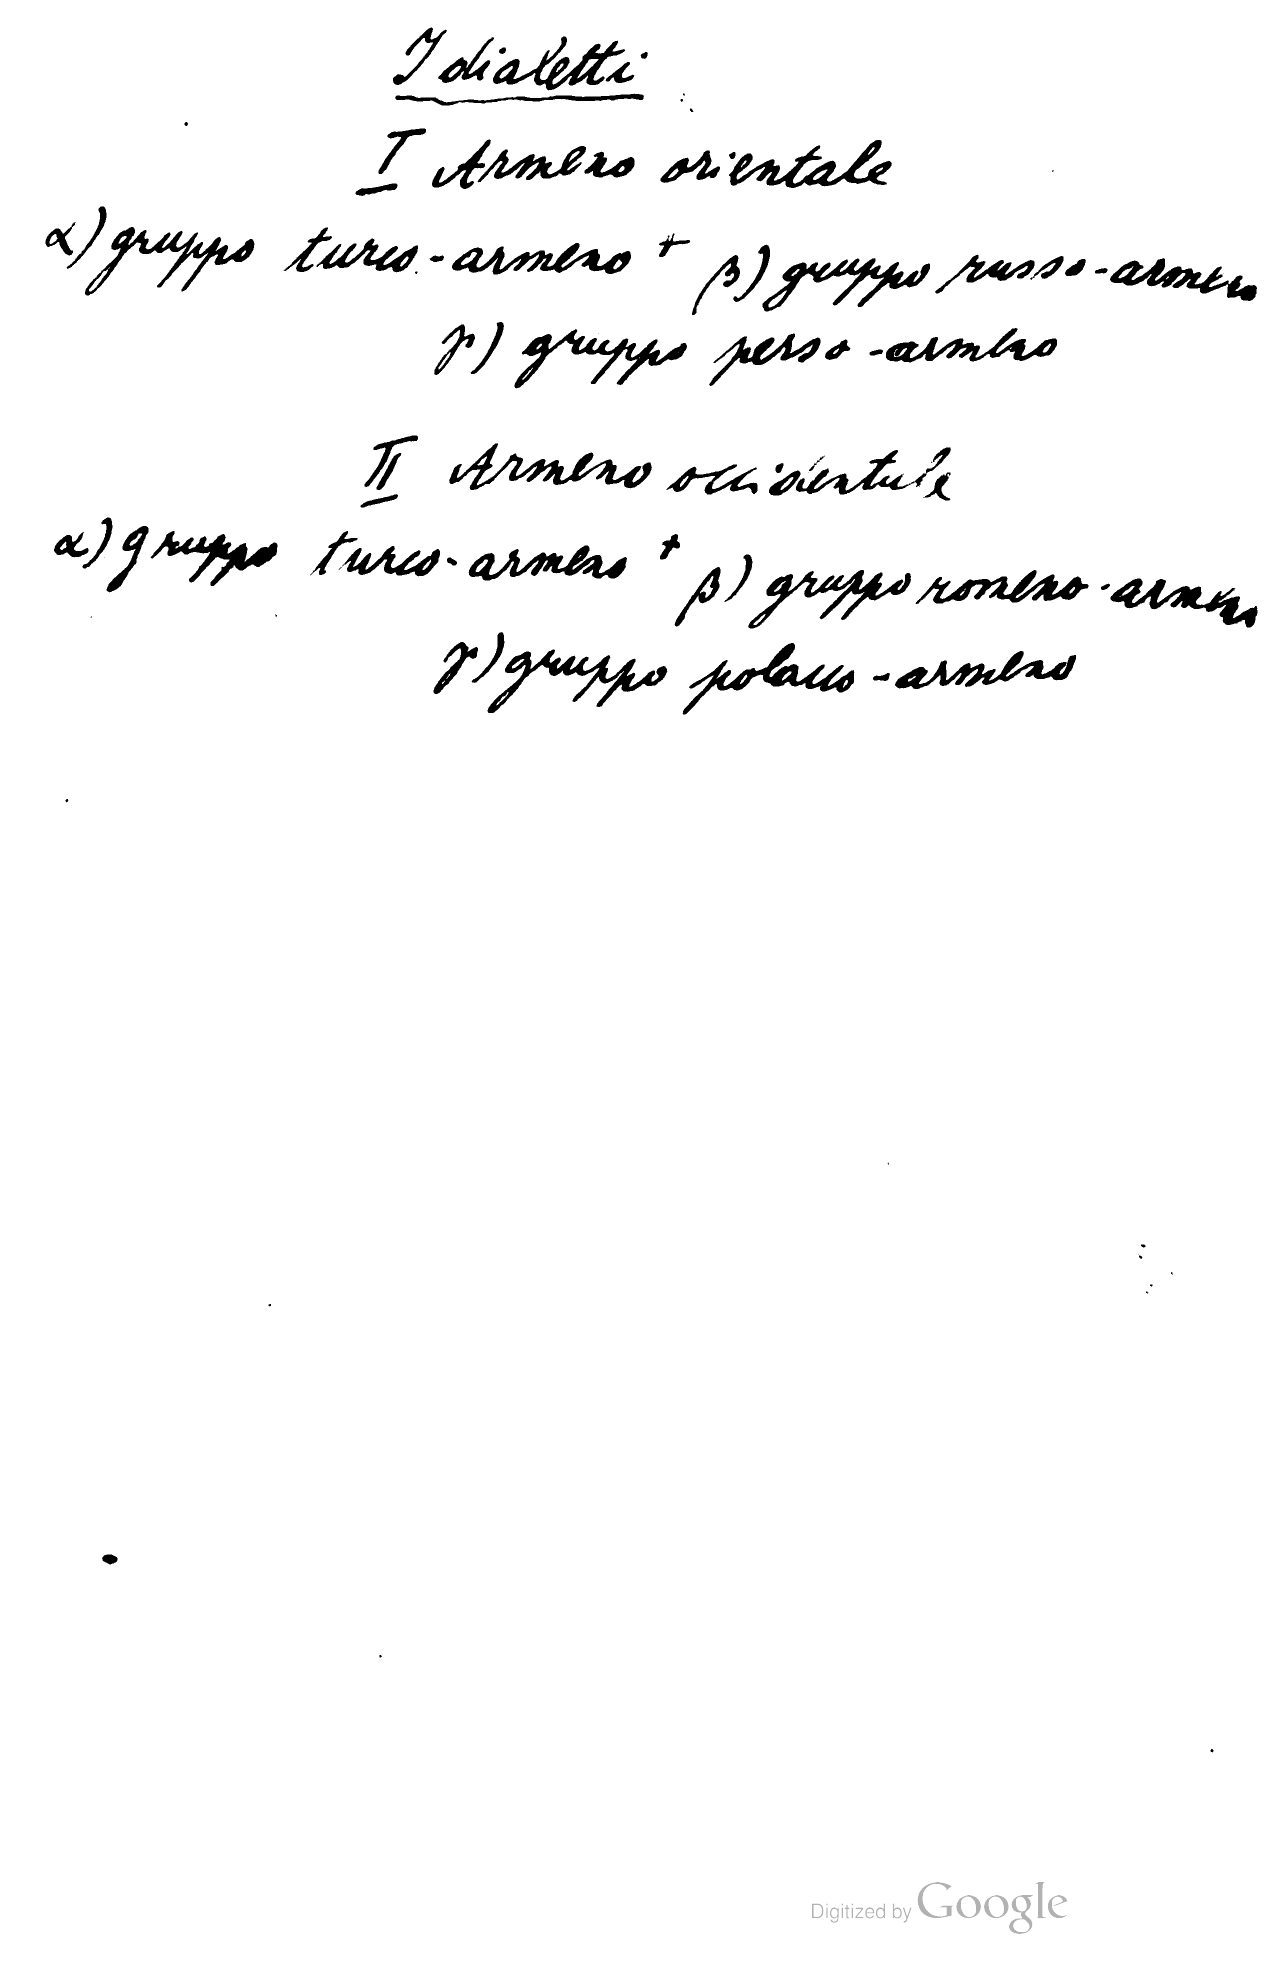 I dialetti
I Armeno orientale
α) gruppo turco-armeno + β) gruppo russo-armeno
γ) gruppo perso-armeno
II Armeno occidentale
α) gruppo turco-armeno + β) gruppo romeno-armeno
γ) gruppo polacco-armeno
Digitized by Google